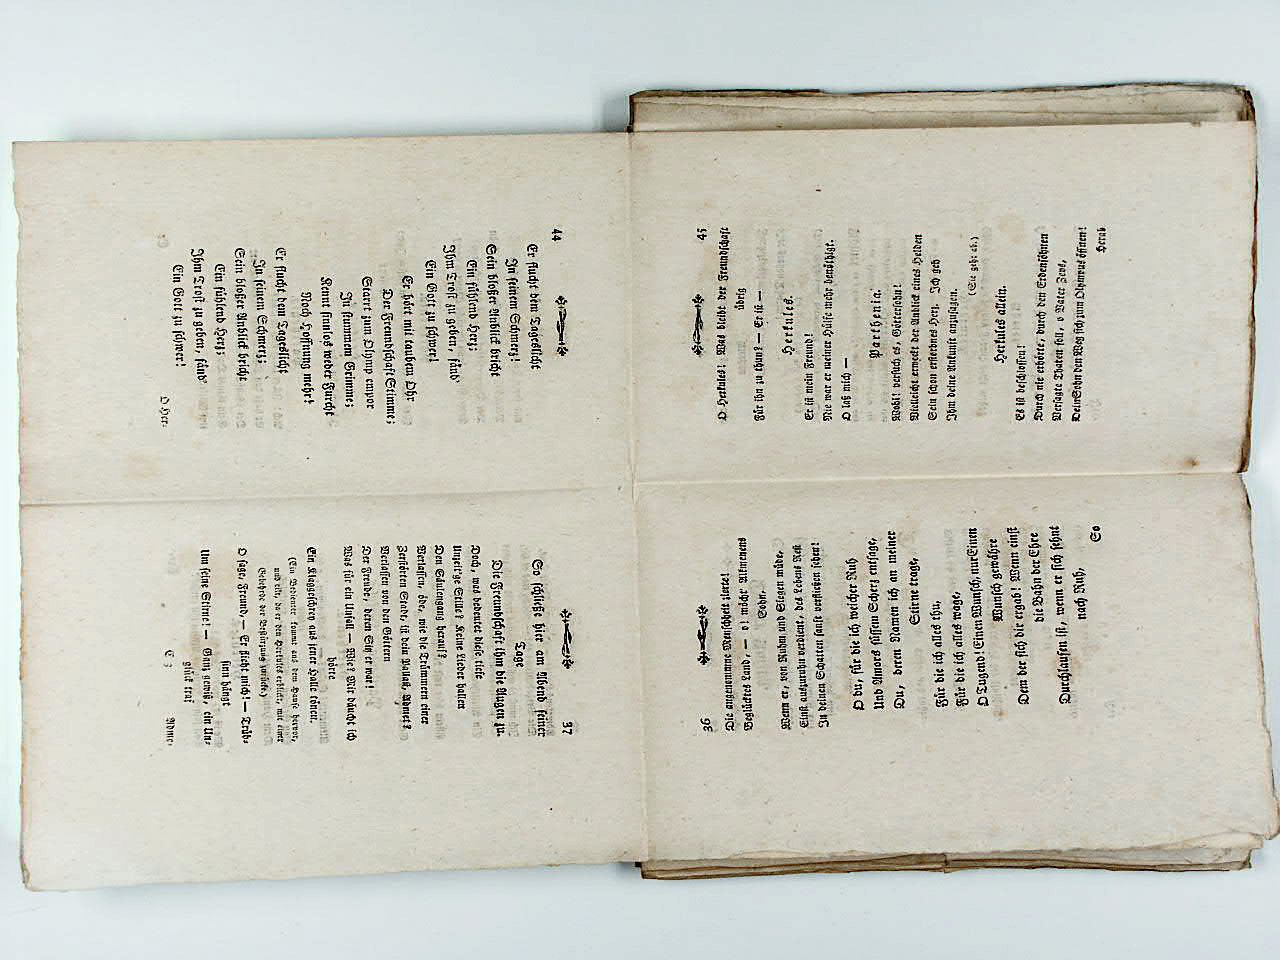 36
Die angenommne Menschheit zierte!
Beglücktes Land, — o! möcht Alkmenens
Sohn,
Wenn er, von Ruhm und Siegen müde,
Einst auszuruhn verdient, des Lebens Rest
In deinen Schatten sanft verfließen sehen!
O du, für die ich weicher Ruh
Und Amors süssem Scherz entsage,
Du, deren Namen ich an meiner
Stirne trage,
Für die ich alles thu,
Für die ich alles wage,
O Tugend! Einen Wunsch, nur Einen
Wunsch gewähre
Dem der sich dir ergab! Wenn einst
die Bahn der Ehre
Durchlaufen ist, wenn er sich sehnt
nach Ruh,
So
37
So schließe hier am Abend seiner
Tage
Die Freundschaft ihm die Augen zu.
Doch, was bedeutet diese tiefe
Unzeit'ge Stille? Keine Lieder hallen
Den Säulengang herauf?
Verlassen, öde, wie die Trümmern einer
Zerstörten Stadt, ist dein Pallast, Admet?
Verlassen von den Göttern
Der Freude, deren Sitz er war!
Was für ein Unfall — Wie? Mir däucht ich
hörte
Ein Klaggeschrey aus jener Halle tönen.
(Ein Bedienter kommt aus dem Hause hervor,
und eilt, da er den Herkules erblickt, mit einer
Gebehrde der Bestürzung zurück.)
O sage, Freund — Er flieht mich! — Trüb-
sinn hängt
Um seine Stirne! — Ganz gewiß, ein Un-
glück traf
C 3
Adme-
44
Er flucht dem Tageslicht
In seinem Schmerz!
Sein bloßer Anblick bricht
Ein fühlend Herz;
Ihm Trost zu geben, fänd'
Ein Gott zu schwer!
Er hört mit taubem Ohr
Der Freundschaft Stimme;
Starrt zum Olymp empor
In stummem Grimme;
Kennt sinnlos weder Furcht
Noch Hoffnung mehr!
Er flucht dem Tageslicht
In seinem Schmerz;
Sein bloßer Anblick bricht
Ein fühlend Herz;
Ihm Trost zu geben, fänd'
Ein Gott zu schwer!
O Her-
45
O Herkules! Was bleibt der Freundschaft
übrig
Für ihn zu thun? — Er ist —
Herkules.
Er ist mein Freund!
Nie war er meiner Hülfe mehr benöthigt.
O laß mich —
Parthenia.
Wohl! versuch es, Göttersohn!
Vielleicht erweckt der Anblick eines Helden
Sein schon erstorbnes Herz. Ich geh
Ihm deine Ankunft anzusagen.
(Sie geht ab.)
Herkules allein.
Es ist beschlossen!
Durch nie erhörte, durch den Erdensöhnen
Versagte Thaten soll, o Vater Zevs,
Dein Sohn den Weg sich zum Olympus öffnen!
Herab